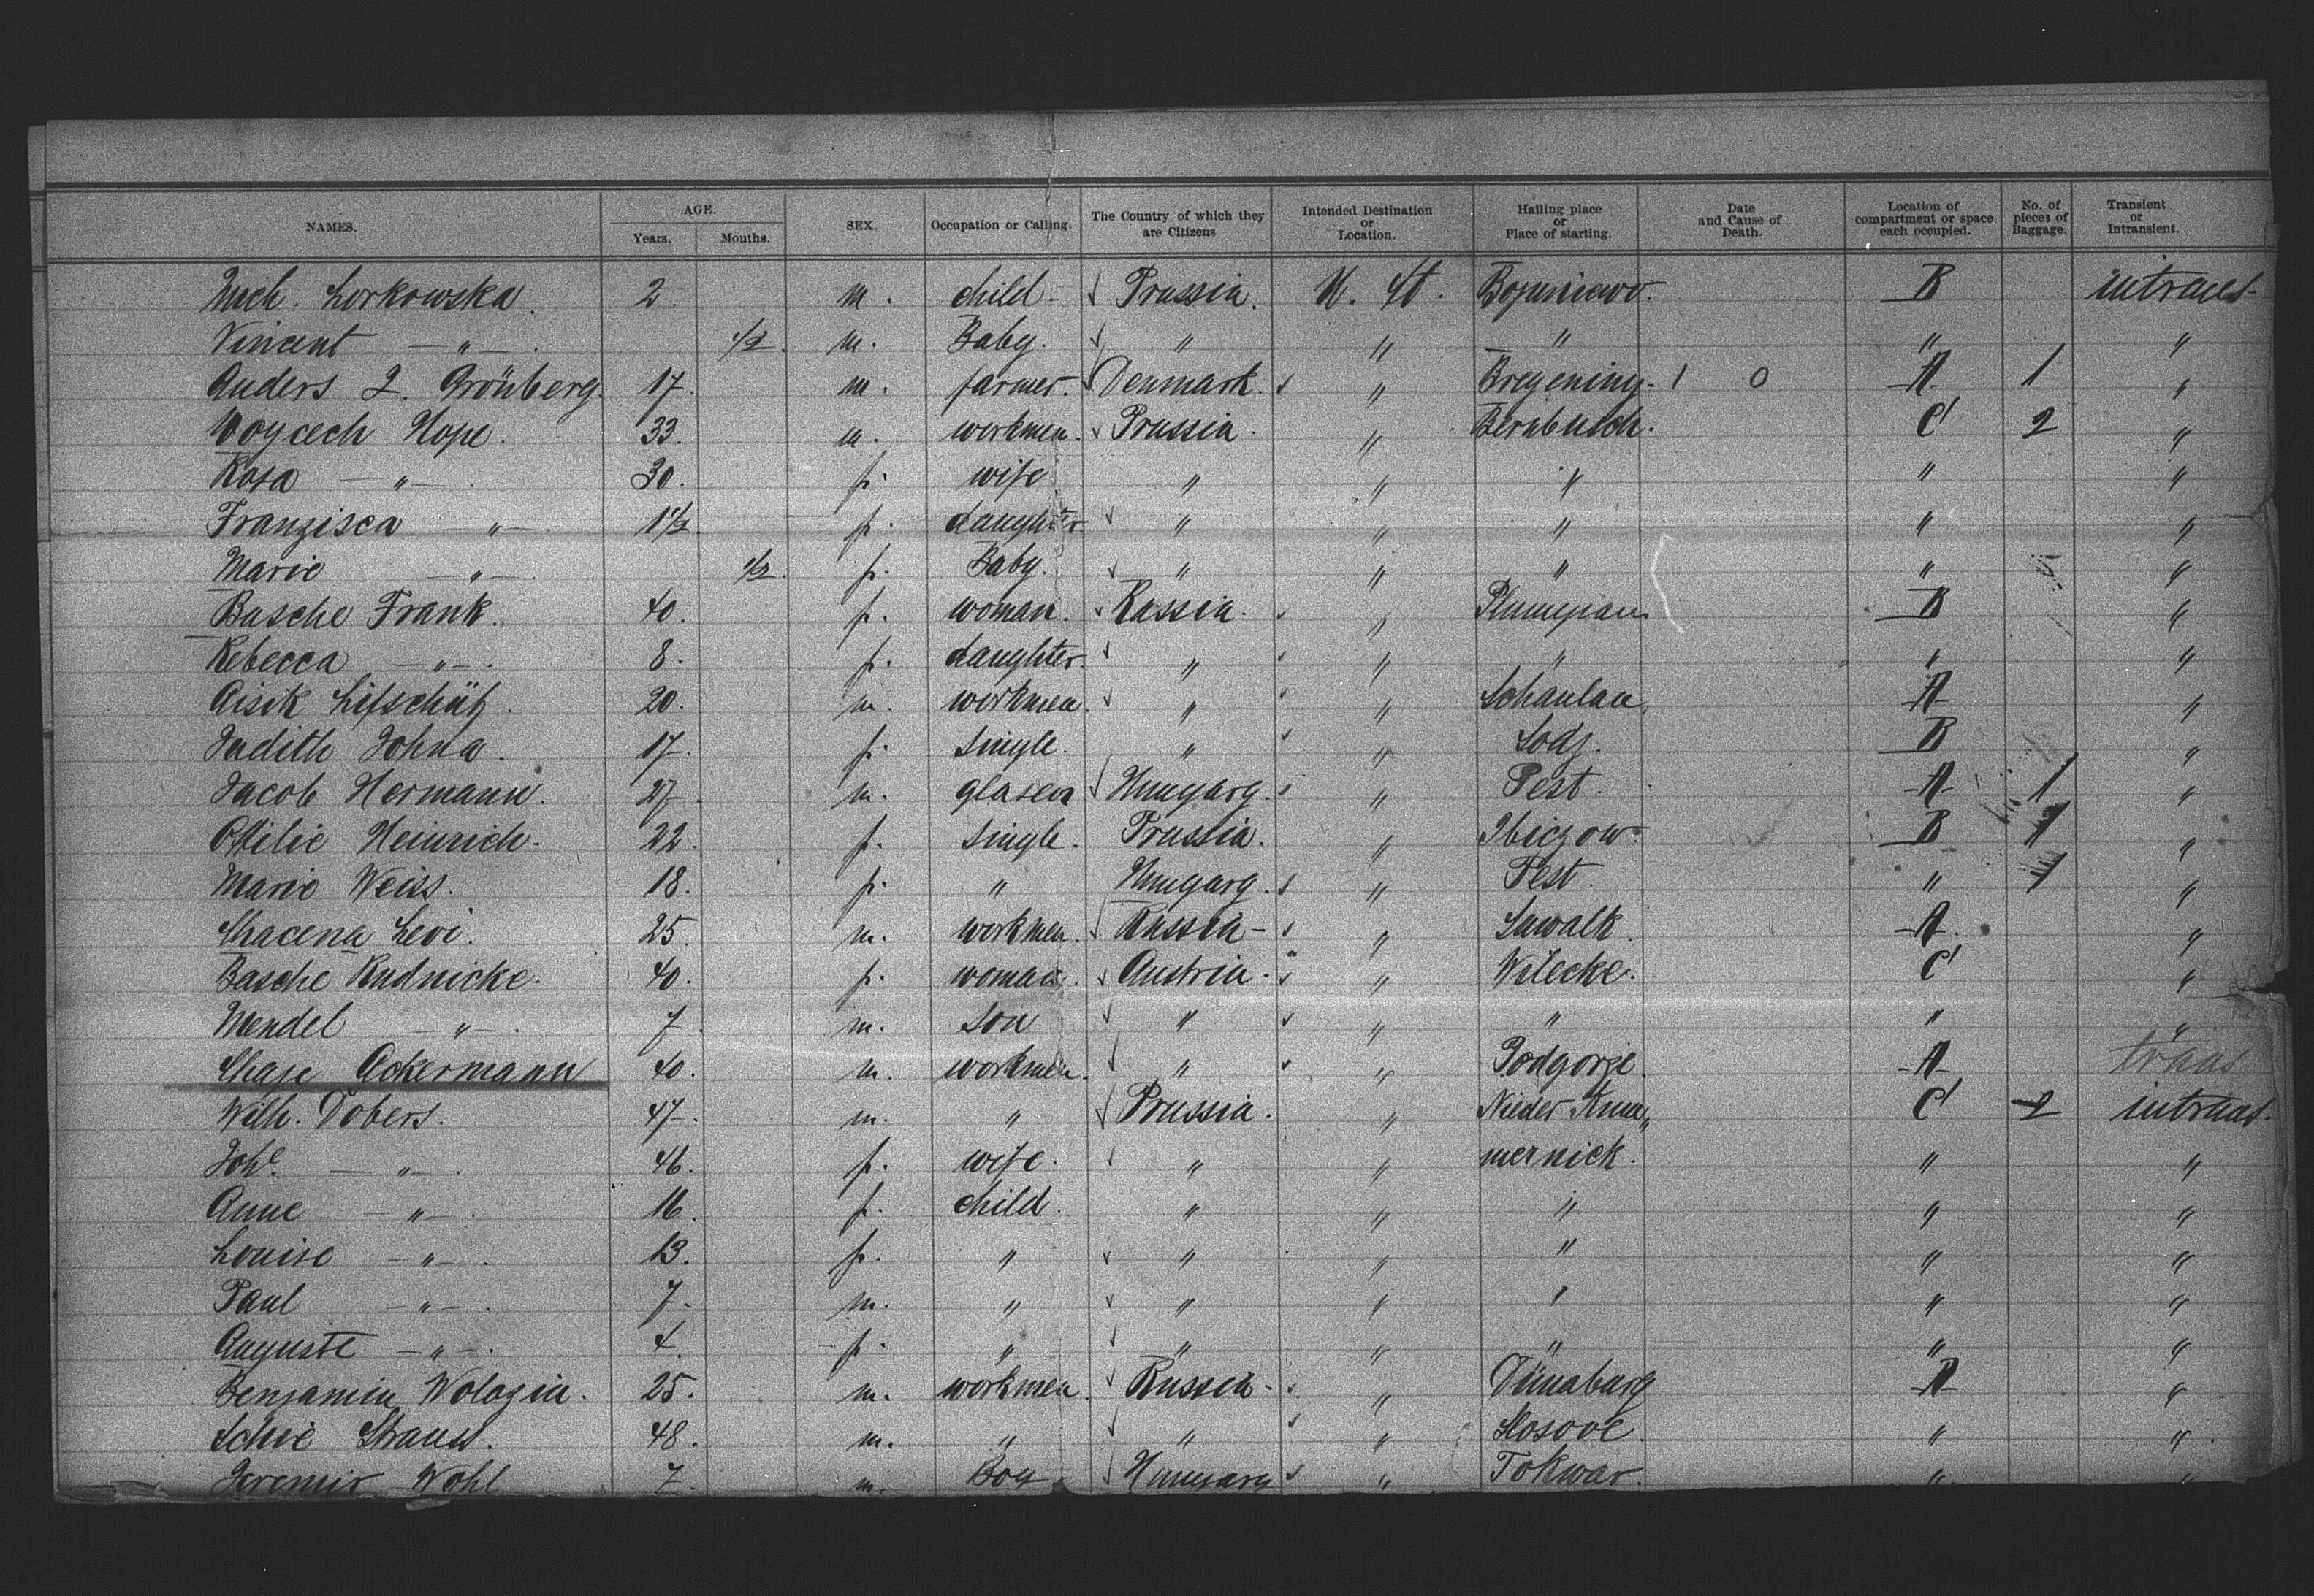 NAMES. AGE. Years. Months. SEX. Occupation or Calling. The Country of which they are Citizens Intended Destination or Location. Hailing place or Place of starting. Date and Cause of Death. Location of compartment or space each occupied. No. of pieces of Baggage. Transient or Intransient.
Mich. Lorkowska. 2. m. child Prussia. U. St. B intrans-
Vincent —"— 1/2. m. Baby. " " " " "
Anders L. Grönberg. 17. m. farmer. Denmark. " Bregening- 1 0 A 1 "
Woycech Hope. 33. m. workmen. Prussia. " Bernbusch. C 2 "
Rosa —"— 30. f. wife " " " " "
Franzisca —"— 1 1/2 f. daughter " " " " "
Marie —"— 1/2. f. Baby. " " " " "
Basche Frank. 40. f. woman. Russia. " B "
Rebecca —"—. 8. f. daughter. " " " " "
Aisik Lifschütz. 20. m. workmen. " " Schaulau A "
Judith Johna. 17. f. single. " " Lodz. B "
Jacob Hermann. 27. m. glaser Hungary. " Pest. A 1 "
Ottilie Heinrich. 22. f. single. Prussia. " B 1 "
Marie Weiss. 18. f. " Hungary. " Pest. " 1 "
Levi. 25. m. workmen. Russia- " Suwalk. A. "
Basche Rudnicke. 40. f. woman. Austria- " Wilecke. C "
Mendel —"—. 7. m. son " " " " "
Ackermann 40. m. workmen. " " Podgorze. A trans
Wilh. Dobers. 47. m. " Prussia. " Nieder Kma„ C 2 intrans.
Joh.e —"—. 46. f. wife. " " mernick. " "
Anne —"—. 16. f. child. " " " " "
Louise —"—. 13. f. " " " " " "
Paul —"—. 7. m. " " " " " "
Auguste —"—. 4. f. " " " " " "
Benjamin Wologin. 25. m. workmen Russia- " Dünaburg A "
Schie Strauss. 48. m. " " " Kosove. " "
Jeremir Wohl 7. m. Boy Hungary " Tokwar. " "